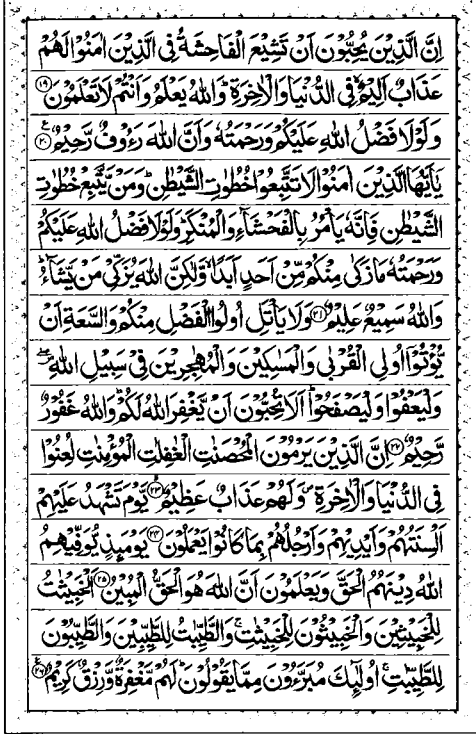 اِنَّ الَّذِیْنَ یُحِبُّوْنَ اَنْ تَشِیْعَ الْفَاحِشَةُ فِی الَّذِیْنَ اٰمَنُوْا لَهُمْ
عَذَابٌ اَلِیْمٌ ۙ فِی الدُّنْیَا وَالْاٰخِرَةِ ؕ وَاللّٰهُ یَعْلَمُ وَاَنْتُمْ لَا تَعْلَمُوْنَ ۝۱۹
وَلَوْلَا فَضْلُ اللّٰهِ عَلَیْكُمْ وَرَحْمَتُهٗ وَاَنَّ اللّٰهَ رَءُوْفٌ رَّحِیْمٌ ۝۲۰ ع
یٰۤاَیُّهَا الَّذِیْنَ اٰمَنُوْا لَا تَتَّبِعُوْا خُطُوٰتِ الشَّیْطٰنِ ؕ وَمَنْ یَّتَّبِعْ خُطُوٰتِ
الشَّیْطٰنِ فَاِنَّهٗ یَاْمُرُ بِالْفَحْشَآءِ وَالْمُنْكَرِ ؕ وَلَوْلَا فَضْلُ اللّٰهِ عَلَیْكُمْ
وَرَحْمَتُهٗ مَا زَكٰی مِنْكُمْ مِّنْ اَحَدٍ اَبَدًا ۙ وَّلٰكِنَّ اللّٰهَ یُزَكِّیْ مَنْ یَّشَآءُ ؕ
وَاللّٰهُ سَمِیْعٌ عَلِیْمٌ ۝۲۱ وَلَا یَاْتَلِ اُولُوا الْفَضْلِ مِنْكُمْ وَالسَّعَةِ اَنْ
یُّؤْتُوْۤا اُولِی الْقُرْبٰی وَالْمَسٰكِیْنَ وَالْمُهٰجِرِیْنَ فِیْ سَبِیْلِ اللّٰهِ ۪ۖ
وَلْیَعْفُوْا وَلْیَصْفَحُوْا ؕ اَلَا تُحِبُّوْنَ اَنْ یَّغْفِرَ اللّٰهُ لَكُمْ ؕ وَاللّٰهُ غَفُوْرٌ
رَّحِیْمٌ ۝۲۲ اِنَّ الَّذِیْنَ یَرْمُوْنَ الْمُحْصَنٰتِ الْغٰفِلٰتِ الْمُؤْمِنٰتِ لُعِنُوْا
فِی الدُّنْیَا وَالْاٰخِرَةِ ۪ وَلَهُمْ عَذَابٌ عَظِیْمٌ ۝۲۳ یَّوْمَ تَشْهَدُ عَلَیْهِمْ
اَلْسِنَتُهُمْ وَاَیْدِیْهِمْ وَاَرْجُلُهُمْ بِمَا كَانُوْا یَعْمَلُوْنَ ۝۲۴ یَوْمَىِٕذٍ یُّوَفِّیْهِمُ
اللّٰهُ دِیْنَهُمُ الْحَقَّ وَیَعْلَمُوْنَ اَنَّ اللّٰهَ هُوَ الْحَقُّ الْمُبِیْنُ ۝۲۵ اَلْخَبِیْثٰتُ
لِلْخَبِیْثِیْنَ وَالْخَبِیْثُوْنَ لِلْخَبِیْثٰتِ ۚ وَالطَّیِّبٰتُ لِلطَّیِّبِیْنَ وَالطَّیِّبُوْنَ
لِلطَّیِّبٰتِ ۚ اُولٰٓىِٕكَ مُبَرَّءُوْنَ مِمَّا یَقُوْلُوْنَ ؕ لَهُمْ مَّغْفِرَةٌ وَّرِزْقٌ كَرِیْمٌ ۝۲۶ ع